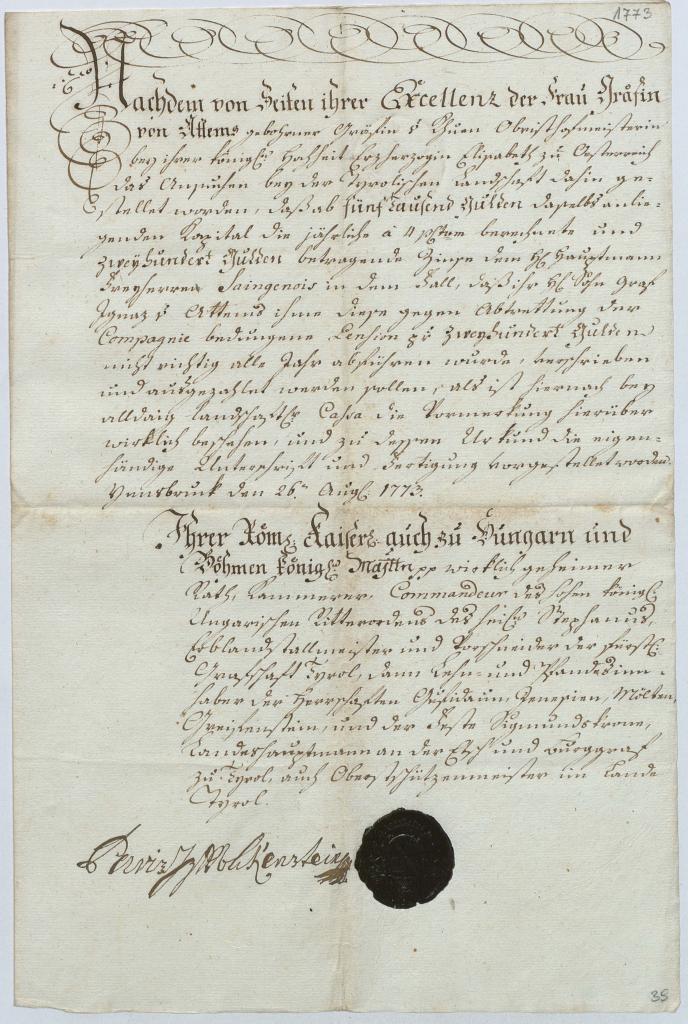 1773
Nachdem von Seiten ihrer Excellenz der Frau Gräfin
von Attems gebohrner Gräfin v Khuen Obristhofmeisterin
bey ihrer königl: Hochheit Erzherzogin Elisabeth zu Oesterreich
das Ansuchen bey der Tyrolischen Landschaft dahin ge-
stellet worden, daß ab fünf tausend Gulden daselbst anlie-
genden Kapital die jährliche à 4 pCto berechnete und
zweyhundert Gulden betragende Zinse dem H: Hauptmann
Freyherren Saingenois in dem Fall, daß ihr H: Sohn Graf
Ignaz v Attems ihme diese gegen Abtrettung der
Compagnie bedungene Pension pr zweyhundert Gulden
nicht richtig alle Jahr abführen wurde, verschrieben
und ausgezahlet werden sollen, als ist hiernach bey
alldaig landschaftl: Cassa die Vormerkung hierüber
wirklich beschehen, und zu dessen Urkund die eigen-
händige Unterschrift und Fertigung vorgestellet worden.
Ynnsbruck den 26.n Augl: 1773.
Ihrer Röm: Kaiserl: auch zu Hungarn und
Böhmen königl: Maytt pp wirklich geheimer
Rath, Kammerer, Commandeur des hohen königl:
Ungarischen Ritterordens des heil: Stephanus,
Erblandstallmeister und Vorschneider der fürstl:
Grafschaft Tyrol, dann Lehn- und Pfandesinn-
haber der Herrschaften Gufidaun, Jenesien, Mölten,
Greifenstein, und der Feste Sigmundskrone,
Landeshauptmann an der Etsch und Burggraf
zu Tyrol, auch Oberstschützenmeister im Lande
Tyrol.
Wolkenstein
35